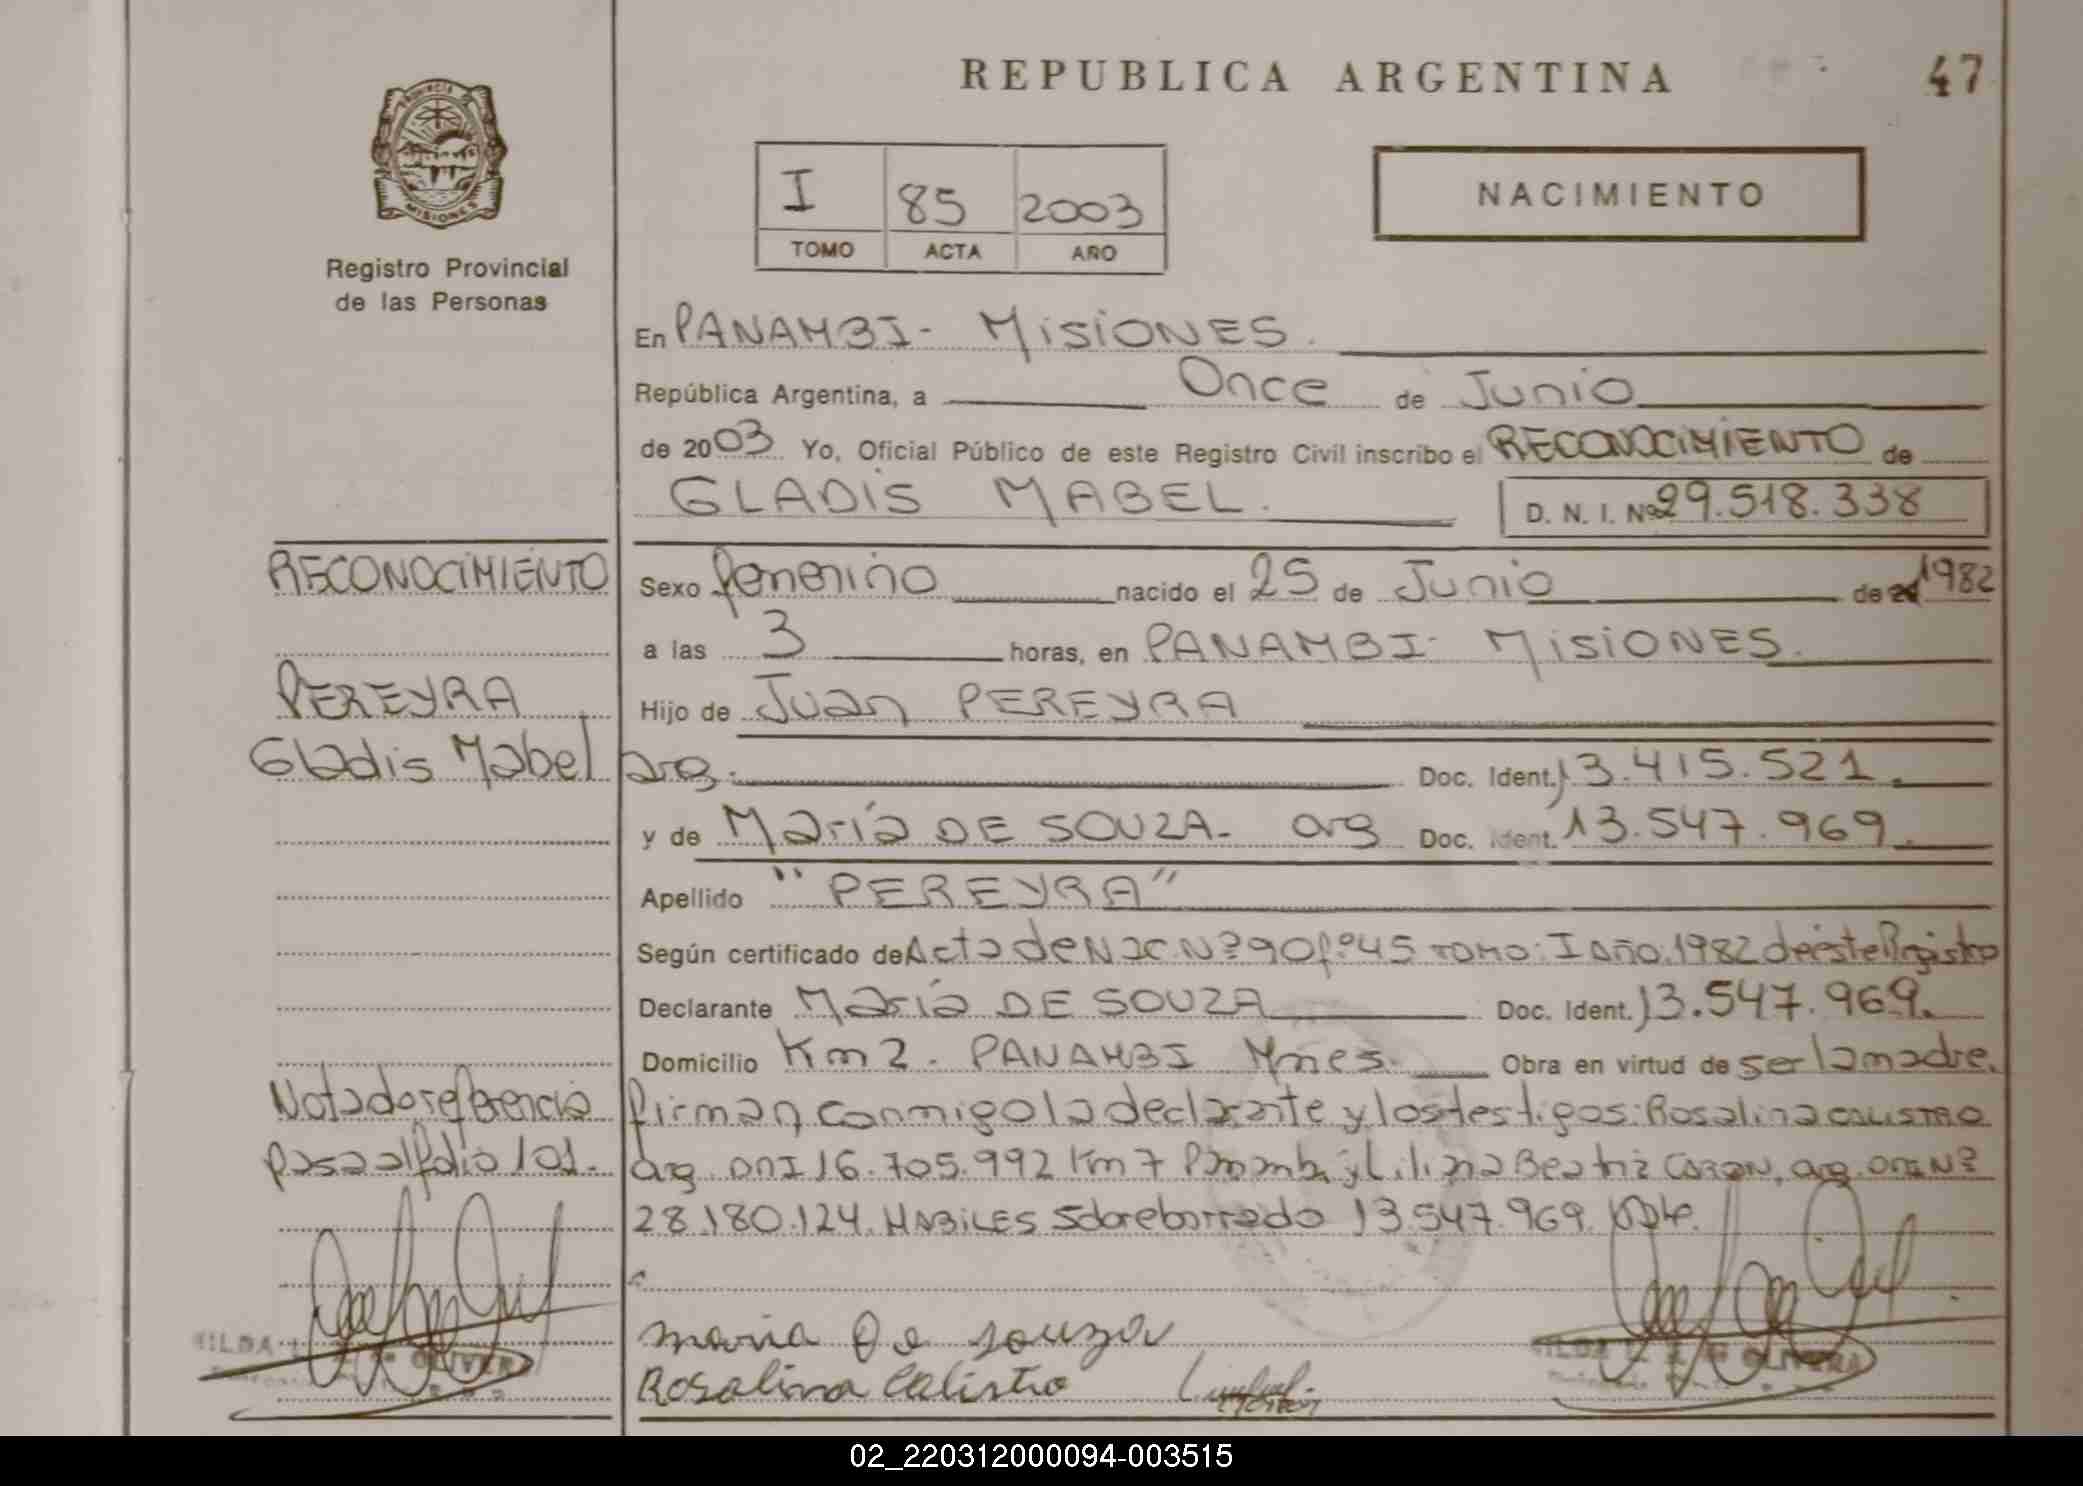 REPUBLICA ARGENTINA
47
PROVINCIA DE
MISIONES
Registro Provincial
de las Personas
I 85 2003
TOMO ACTA AÑO
NACIMIENTO
En PANAMBI - MISIONES.
República Argentina, a Once de Junio
de 2003 Yo, Oficial Público de este Registro Civil inscribo el RECONOCIMIENTO de
GLADIS MABEL. D. N. I. Nº 29.518.338
RECONOCIMIENTO
PEREYRA
Gladis Mabel
Sexo femenino nacido el 25 de Junio de 1982
a las 3 horas, en PANAMBI - MISIONES.
Hijo de Juan PEREYRA
arg. Doc. Ident. 13.415.521.
y de María DE SOUZA - arg Doc. Ident. 13.547.969.
Apellido "PEREYRA"
Según certificado de Acta de Nac. Nº 90 fº 45 TOMO: I Año 1982 de éste Registro
Declarante María DE SOUZA Doc. Ident. 13.547.969.
Domicilio Km 2 - PANAMBI Mnes. Obra en virtud de ser la madre.
Nota de referencia
pasa al folio 101.
firman conmigo la declarante y los testigos: Rosalina CALISTRO
arg. DNI 16.705.992 Km 7 Panambi y Liliana Beatriz arg. DNI Nº
28.180.124. HABILES Sobreborrado 13.547.969. Vale.
maria De souza
Rosalina Calistro
HILDA OLIVERA
HILDA L. OLIVERA
02_220312000094-003515